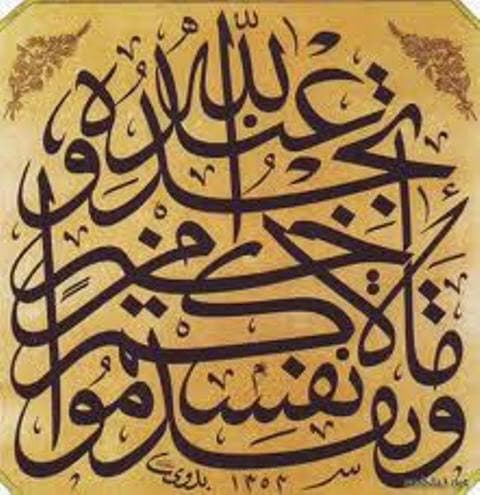 وما تقدموا لأنفسكم من خير تجدوه عند الله
بدوي